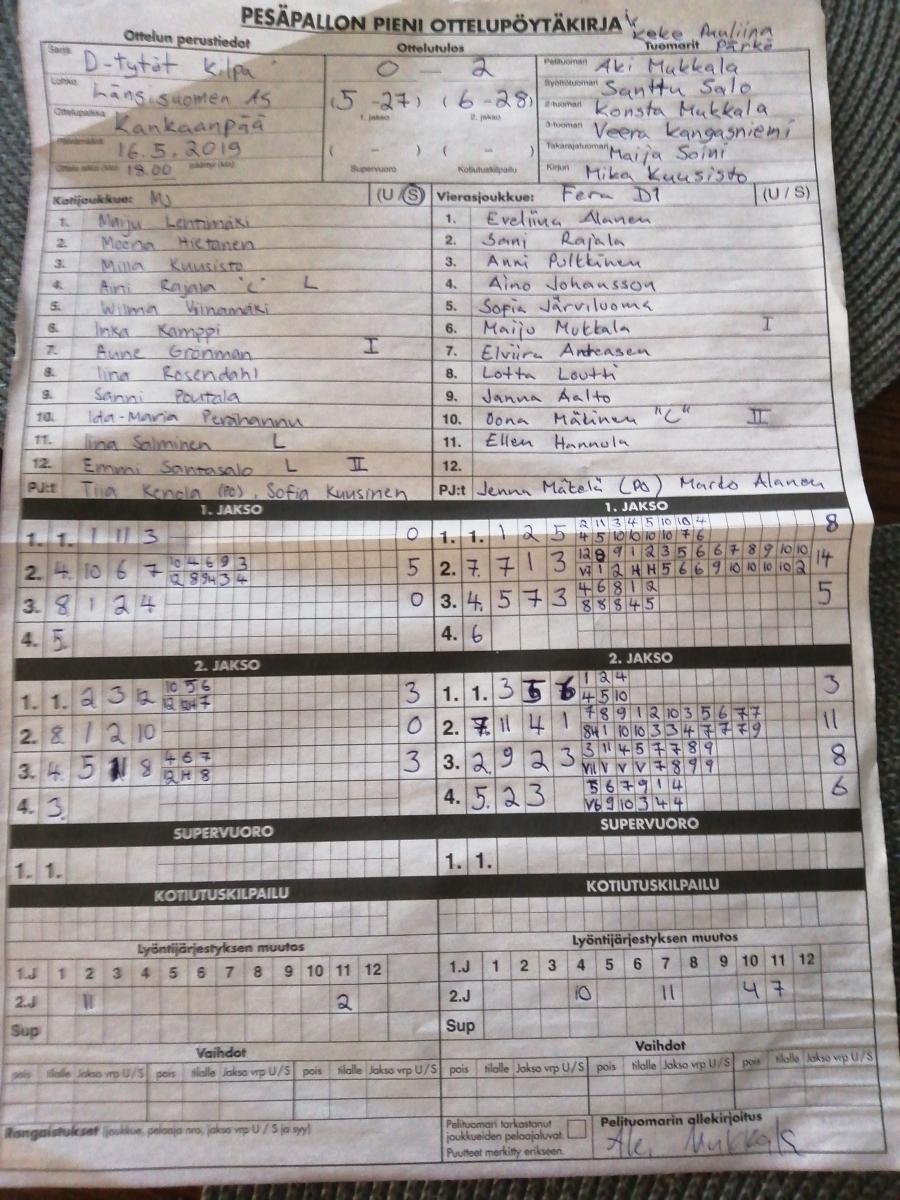 PESÄPALLON PIENI OTTELUPÖYTÄKIRJA
Keke Pauliina
Pärkö
Ottelun perustiedot
Ottelutulos
Tuomarit
Sarja D-tytöt kilpa
0 – 2
Pelituomari Aki Mukkala
Lohko Länsisuomen AS
(5 - 27) (6 - 28)
Syöttötuomari Santtu Salo
1. jakso 2. jakso
2-tuomari Konsta Mukkala
Ottelupaikka Kankaanpää
3-tuomari Veera Kangasniemi
Päivämäärä 16.5.2019
( - ) ( - )
Takarajatuomari Maija Soini
Ottelu alkoi (klo) 18.00 päättyi (klo)
Supervuoro Kotiutuskilpailu
Kirjuri Mika Kuusisto
Kotijoukkue: MJ (U/S)
Vierasjoukkue: Fera D1 (U/S)
1. Marju Lehtimäki
1. Eveliina Alanen
2. Meena Hietanen
2. Sani Rajala
3. Milla Kuusisto
3. Anni Pulkkinen
4. Aini Rajala "C" L
4. Aino Johansson
5. Wilma Viinamäki
5. Sofia Järviluoma
6. Inka Kamppi
6. Maiju Mukkala I
7. Aune Grönman I
7. Elviira Anteasen
8. Iina Rosendahl
8. Lotta Loutti
9. Sanni Poutala
9. Janna Aalto
10. Ida-Maria Perähannu
10. Oona Mäkinen "C" II
11. Iina Salminen L
11. Ellen Hannula
12. Emmi Santasalo L II
12.
PJ:t Tiia Kenola (PO), Sofia Kuusinen
PJ:t Jenna Mäkelä (PO) Marko Alanen
1. JAKSO
1. JAKSO
1. 1. 1 11 3 0
1. 1. 1 2 5 2 11 3 4 5 10 10 4 8
4 5 10 10 10 10 7 6
2. 4. 10 6 7 10 4 6 9 3 5
12 8 9H 3 4
2. 7. 7 1 3 12 8 9 1 2 3 5 6 6 7 8 9 10 10 14
V7 1 2 H H 5 6 6 9 10 10 10 10 2
3. 8 1 2 4 0
3. 4. 5 7 3 4 6 8 1 2 5
8 8 8 4 5
4. 5.
4. 6
2. JAKSO
2. JAKSO
1. 1. 2 3 12 10 5 6 3
12 12H 7
1. 1. 3 5 6 1 2 4 3
4 5 10
2. 8 1 2 10 0
2. 7. 11 4 1 7 8 9 1 2 10 3 5 6 7 7 11
8H 1 10 10 3 3 4 7 7 7 9
3. 4. 5 11 8 4 6 7 3
12 H 8
3. 2. 9 2 3 3 11 4 5 7 7 8 9 8
V11 V V V 7 8 9 9
4. 3.
4. 5. 2 3 5 6 7 9 1 4 6
V6 9 10 3 4 4
SUPERVUORO
SUPERVUORO
1. 1.
1. 1.
KOTIUTUSKILPAILU
KOTIUTUSKILPAILU
Lyöntijärjestyksen muutos
Lyöntijärjestyksen muutos
1.J 1 2 3 4 5 6 7 8 9 10 11 12
1.J 1 2 3 4 5 6 7 8 9 10 11 12
2.J 11 2
2.J 10 11 4 7
Sup
Sup
Vaihdot
Vaihdot
pois tilalle Jakso vrp U/S pois tilalle Jakso vrp U/S pois tilalle Jakso vrp U/S
pois tilalle Jakso vrp U/S pois tilalle Jakso vrp U/S pois tilalle Jakso vrp U/S
Rangaistukset (joukkue, pelaaja nro, jakso vrp U / S ja syy)
Pelituomari tarkastanut
joukkueiden pelaajaluvat.
Puutteet merkitty erikseen.
Pelituomarin allekirjoitus
Aki Mukkala